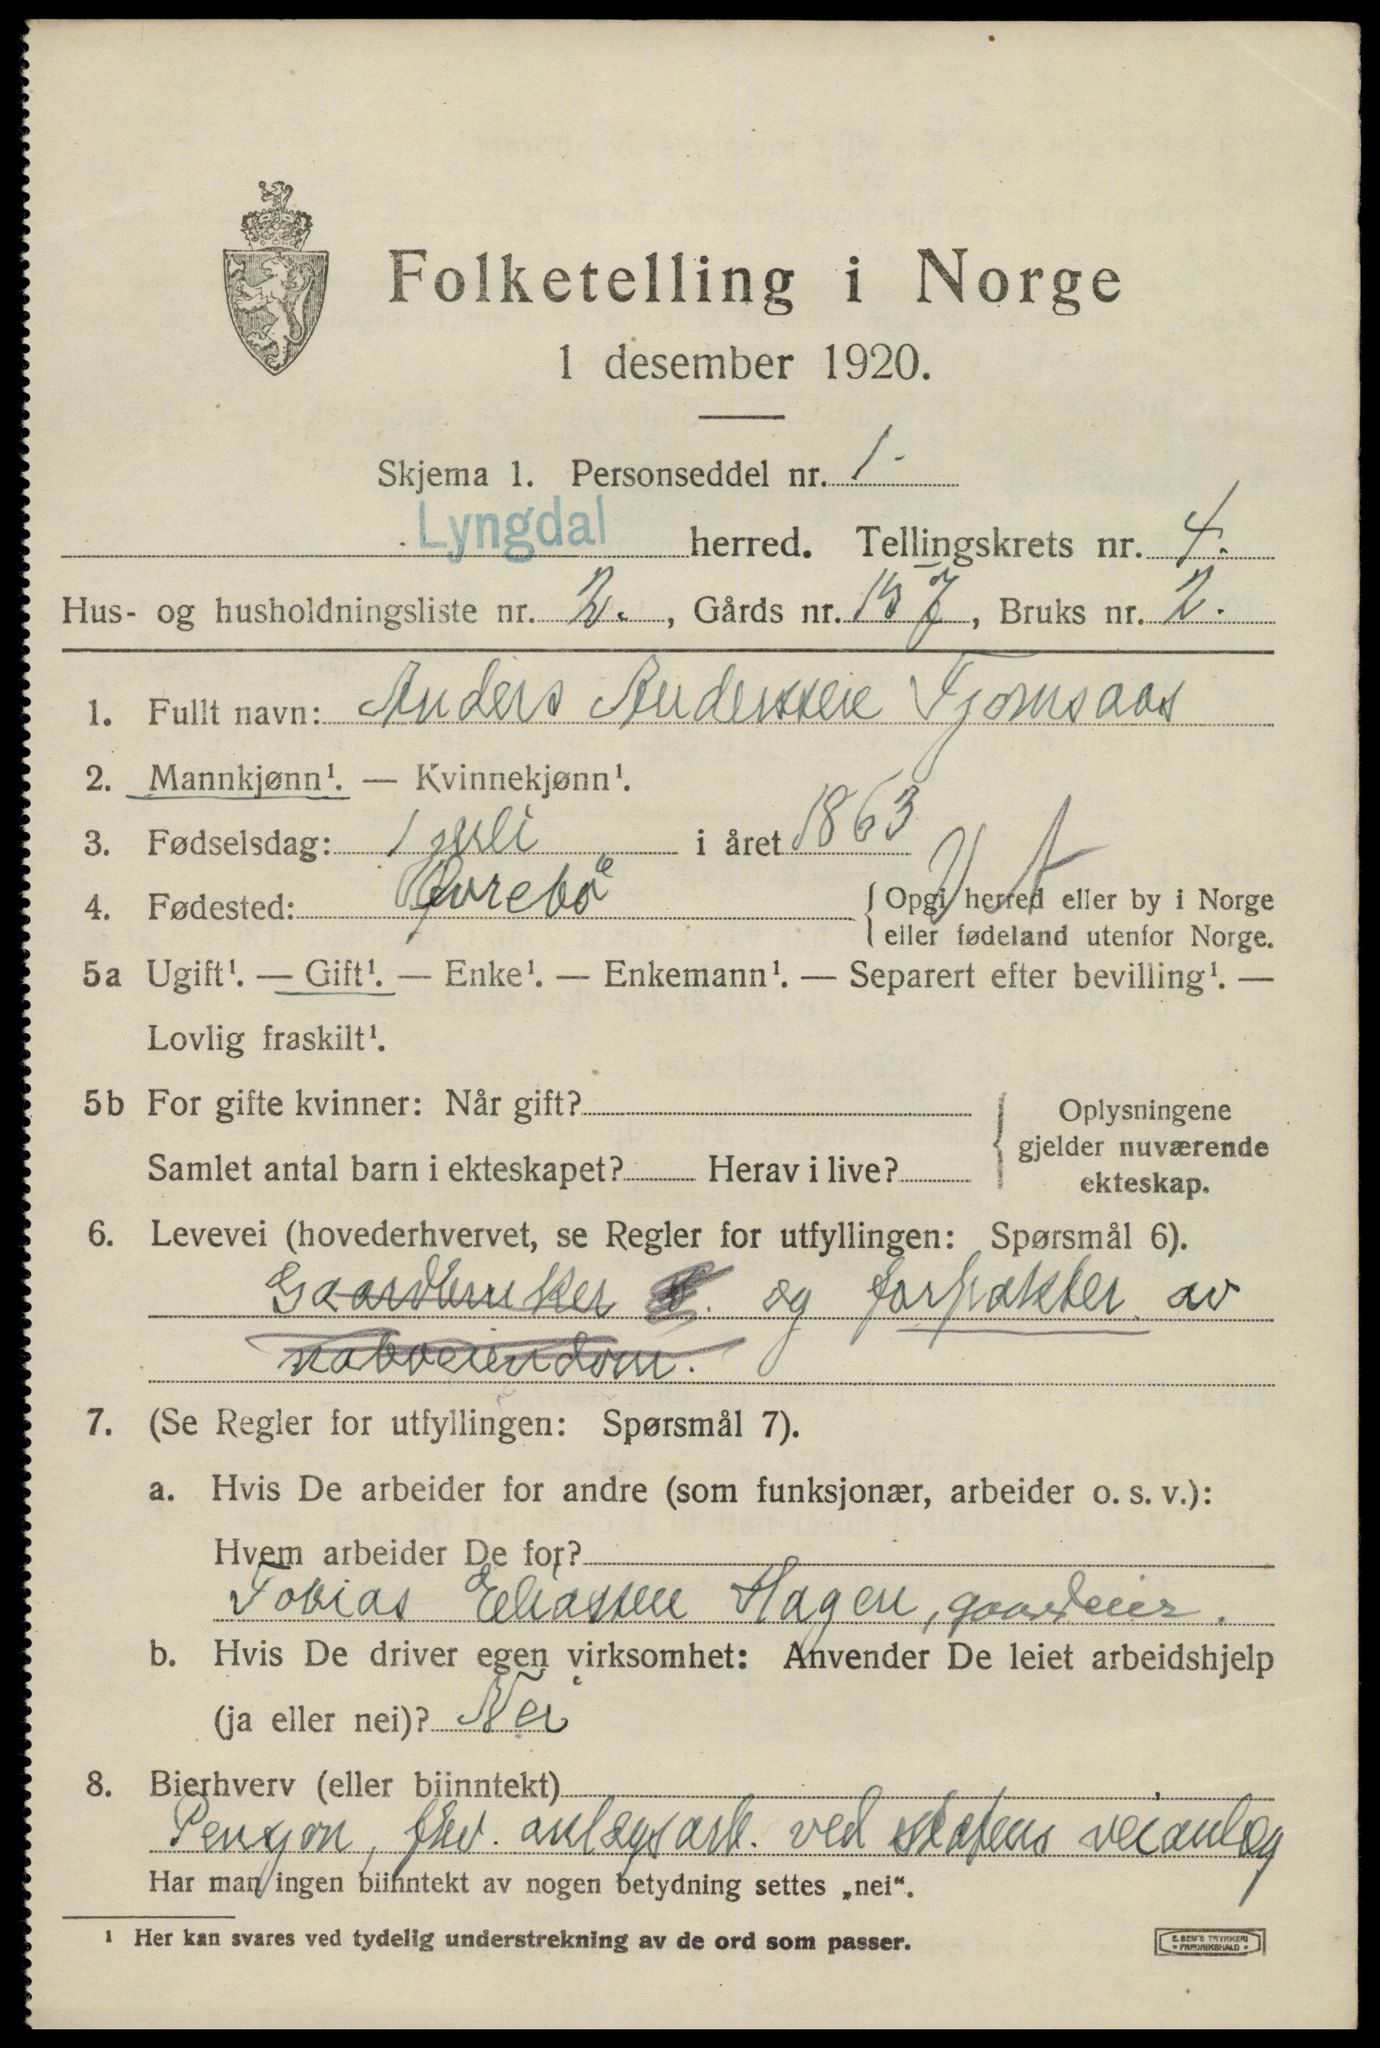 Folketelling i Norge
1 desember 1920.
Skjema 1. Personseddel nr. 1.
Lyngdal herred. Tellingskrets nr. 4.
Hus- og husholdningsliste nr. 2., Gårds nr. 157, Bruks nr. 2.
1. Fullt navn: Anders Anderssen Tjomsaas
2. Mannkjønn¹. — Kvinnekjønn¹.
3. Fødselsdag: 1 juli i året 1863
4. Fødested: Øvrebø { Opgi herred eller by i Norge
eller fødeland utenfor Norge.
5a Ugift¹. — Gift¹. — Enke¹. — Enkemann¹. — Separert efter bevilling¹. —
Lovlig fraskilt¹.
5b For gifte kvinner: Når gift? { Oplysningene
gjelder nuværende
Samlet antal barn i ekteskapet? Herav i live? ekteskap.
6. Levevei (hovederhvervet, se Regler for utfyllingen: Spørsmål 6).
Gaardbruker og forpakter av
naboeiendom.
7. (Se Regler for utfyllingen: Spørsmål 7).
a. Hvis De arbeider for andre (som funksjonær, arbeider o. s. v.):
Hvem arbeider De for?
Tobias Eliassen Hagen, gaardeier.
b. Hvis De driver egen virksomhet: Anvender De leiet arbeidshjelp
(ja eller nei)? Nei
8. Bierhverv (eller biinntekt)
Pensjon, fhv. anlægsarb. ved statens veianlæg
Har man ingen biinntekt av nogen betydning settes „nei“.
¹ Her kan svares ved tydelig understrekning av de ord som passer.
E. SEM'S TRYKKERI
FREDRIKSHALD